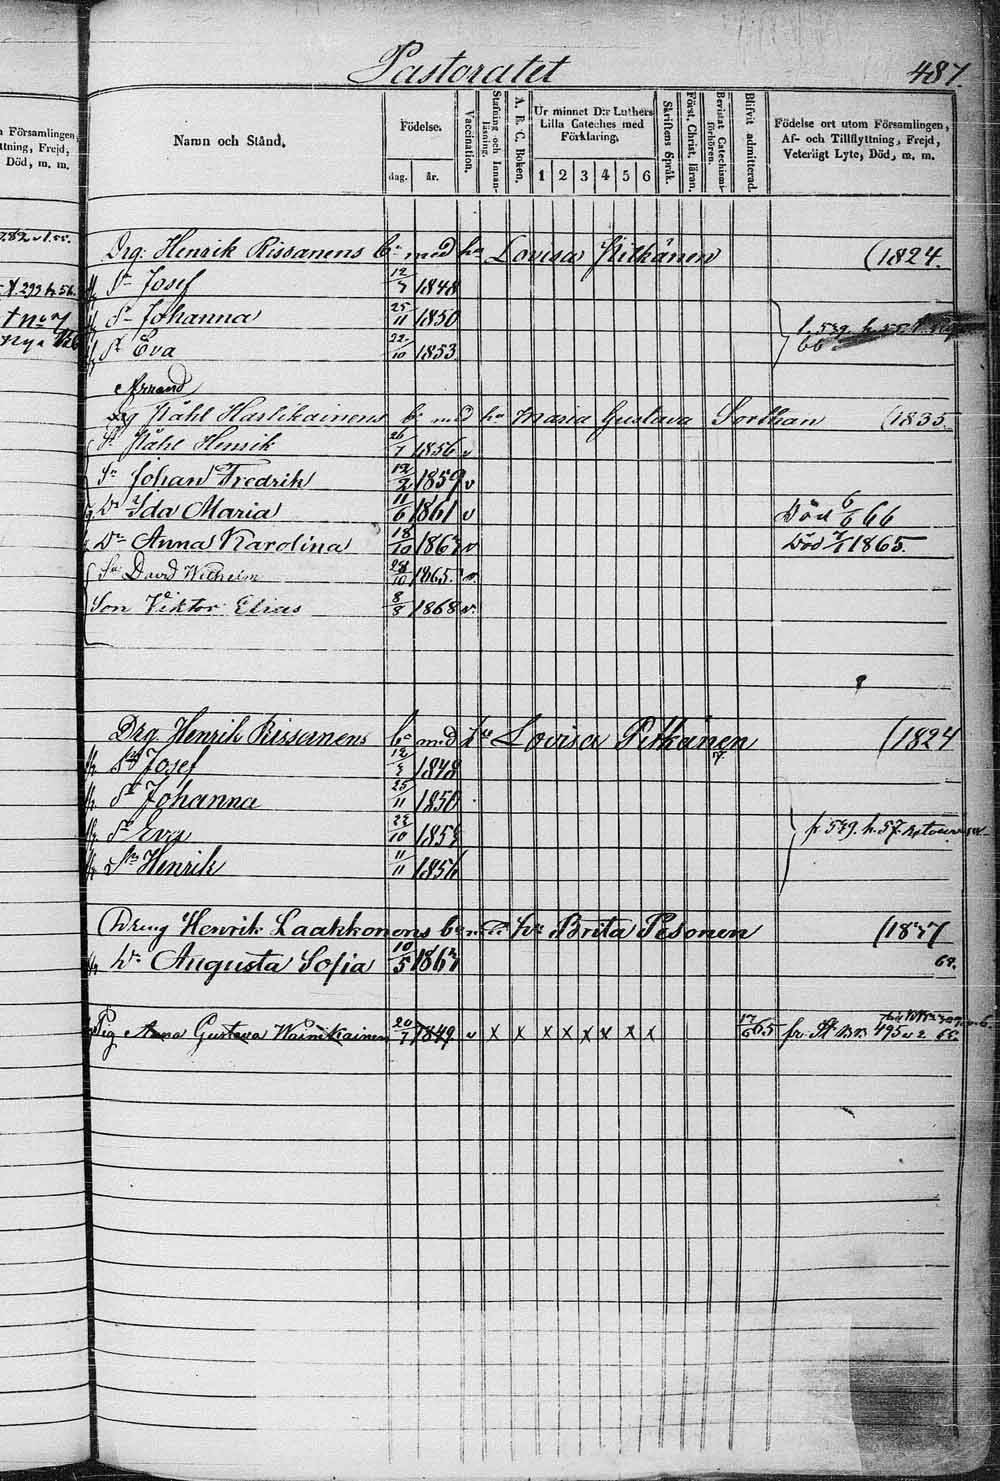 Pastoratet
487.
Namn och Stånd.
Födelse.
dag.
år.
Vaccination.
Stafning och Innanläsning.
A. B. C. Boken.
Ur minnet D:r Luthers Lilla Cateches med Förklaring.
1 2 3 4 5 6
Skriftens Språk.
Först. Christ. läran.
Bevistat Catechismiförhören.
Blifvit admitterad.
Födelse ort utom Församlingen,
Af- och Tillflyttning, Frejd,
Veterligt Lyte, Död, m. m.
Församlingen,
ttning, Frejd,
Död, m. m.
Drg: Henrik Rissanens bn med ha Lovisa Pitkänen (1824.
Sn Josef 12/3 1848
Dr Johanna 25/11 1850
Dr Eva 22/10 1853
Drg Påhl Hartikainens bn med ha Maria Gustava (1835.
Sn Påhl Henrik 26/7 1856 v
Sn Johan Fredrik 12/2 1859 v
Dr Ida Maria 11/6 1861 v Död 6/6 66
Dr Anna Karolina 18/10 1863 v Död 1865.
Sn David Wilhelm 28/10 1865. v.
Son Viktor Elias 8/8 1868 v.
Drg. Henrik Rissanens bn med ha Lovisa Pitkänen (1824
Sn Josef 12/3 1848
Dr Johanna 25/11 1850
Dr Eva 22/10 1853
Sn Henrik 11/11 1856
fr 539. h. 57.
Dreng Henrik Laakkonens bn med ha Brita Pesonen (1837
Dr Augusta Sofia 10/5 1863
Pig Anna Gustava Wainikainen 20/7 1849 v x x x x x x x x 17/6 65 fr.